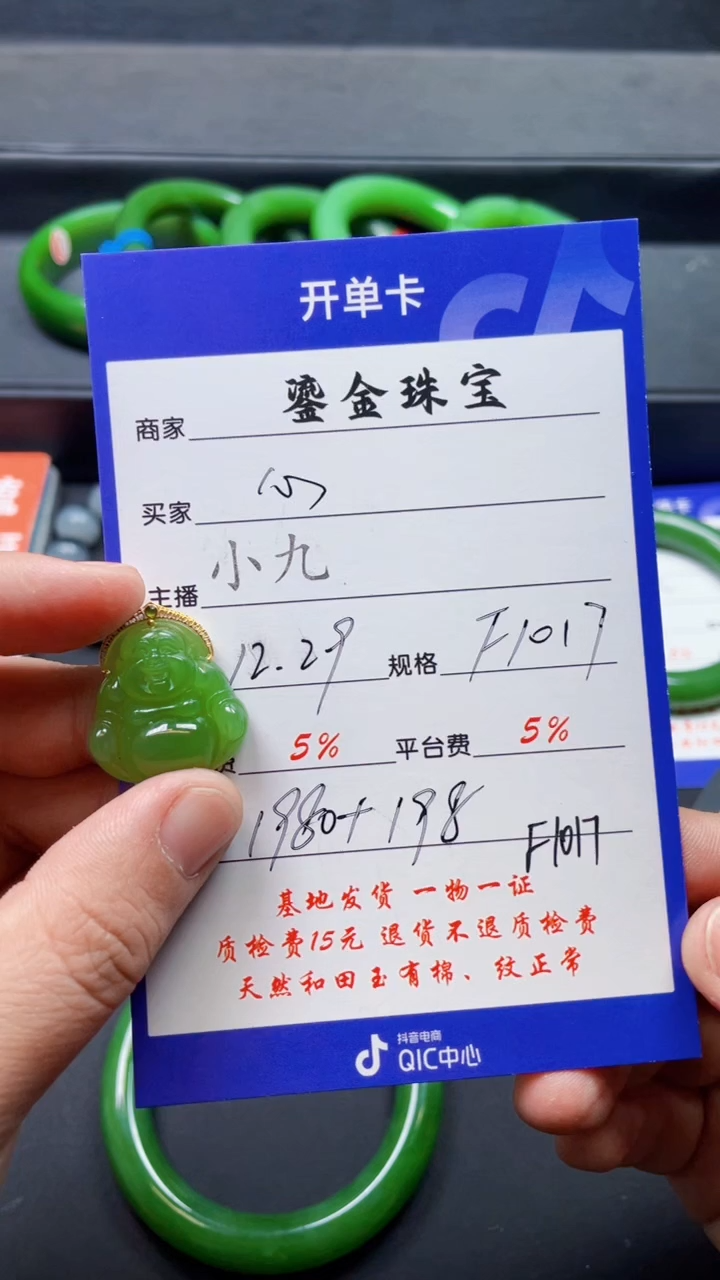 开单卡
商家 鎏金珠宝
买家
主播 小九
12.29 规格 F1017
费 5% 平台费 5%
1980+198
F1017
基地发货 一物一证
质检费15元 退货不退质检费
天然和田玉有棉、纹正常
抖音电商
QIC中心